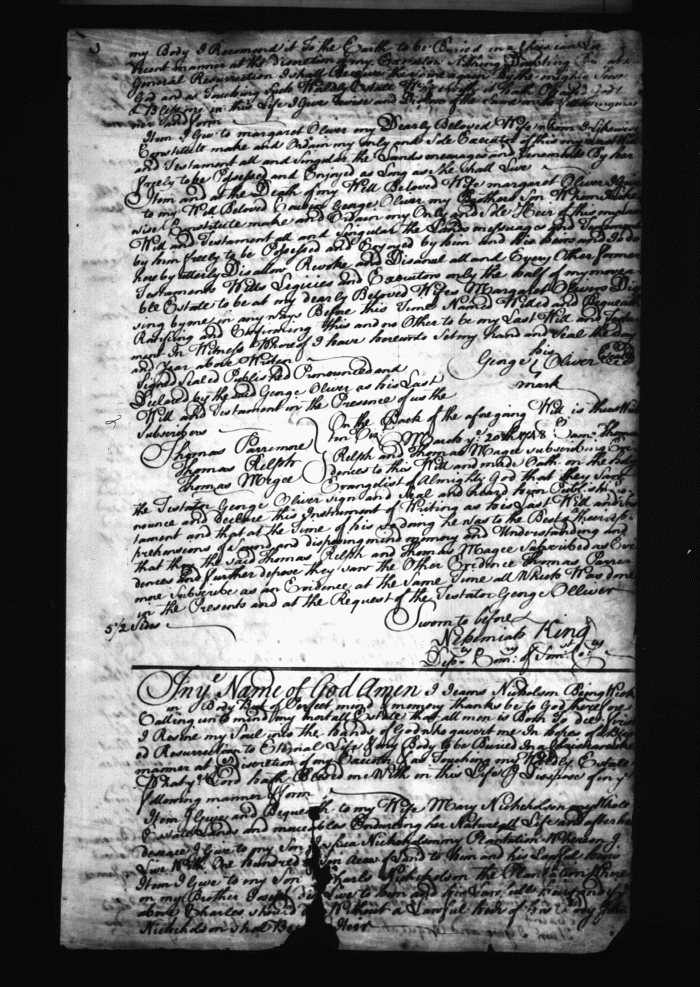 my Body I Recomend it To the Earth to be Buried in a Christian Like
Decent manner at the discretion of my Executor Nothing Doubting But at the
General Resurrection I shall Receive the Same again By the mighty Power
God and as Touching Such Worldly Estate Wherewith it Hath Pleased God
to Bless me in this Life I Give Devise and Dispose of the Same in the following manner
and form
Item I Give to margaret Oliver my Dearly Beloved Wife whom I Likewise
Constitute make and Ordain my only and Sole Executor of this my Last Will
and Testament all and Singular the Lands messuages and Tenements By her
freely to be Possessed and Enjoyed as Long as She Shall Live
Item and at the Death of my Well Beloved Wife margaret Oliver I Give
to my Well Beloved Cousin George Oliver my Brothers Son Whom I Like
wise Constitute make and Ordain my Only and Sole Heir of this my Last
Will and Testament all and Singular the Lands messuages and Tenements
by him freely to be Possessed and Enjoyed by him and His heirs and I do
hereby utterly Disallow Revoke and Disanul all and Every Other former
Testaments Wills Legacies and Executors only the half of my movea
ble Estate to be at my dearly Beloved Wifes Margaret Olivers Dispo
sing by me in any ways Before this Time Named Willed and Bequeathed
Ratifying and Confirming this and no Other to be my Last Will and Testa
ment In Witness Whereof I have hereunto Set my Hand and Seal the day
and Year above Written
Signed Sealed Published Pronounced and
Declared by the said George Oliver as his Last
Will and Testament in the Presence of us the
Subscribers
his
George Oliver Seal
mark
Thomas Parremore
Thomas Relph
Thomas Magee
On the Back of the afore going Will is thus Writ
ten March ye 20th 1748 Came Thomas
Relph and Thomas Magee subscribing Evi
dences to this Will and made Oath on the Holy
Evangelist of Almighty God that they Saw
the Testator George Oliver sign and Seal and heard him Publish Pro
nounce and Declare this Instrument of Writing as his Last Will and Tes
tament and that at the Time of his so doing he was to the Best of their Ap
prehensions of Sound and disposing mind memory and Understanding and
that they the said Thomas Relph and Thomas Magee Subscribed as Evi
dences and further depose they saw the Other Evidence Thomas Parra
more Subscribe as an Evidence at the Same Time all Which Was done
in the Presents and at the Request of the Testator George Olliver
5 1/2 Sides
Sworn to before
Nehemiah King
Depty Comy of Somst Coty
In ye Name of God Amen I Jeams Nicholson Being Weak
in Body But of Perfect mind & memory thanks be to God therefore
Calling unto mind my mortall Estate that all men is Born To die first
I Resine my Soul into the hands of God who gave it me In hopes of a Bless
ed Resurrection to Eternal Life & my Body to be Buried In a
manner at ye Discretion of my Executor & as Touching my Worldly Estate
What ye Lord hath Blessed me With in this Life I Dispose of in ye
following manner & form
Item I Give and Bequeath to my Wife Mary Nicholson my Whole
Estate Lands and moveables Enduring her Naturall Life and after her
decease I give to my Son Nicholson my Plantation Whereon I
Live With One hundred Acres of Land to him and his Lawful heirs
Item I Give to my Son Charles Nicholson the Plantation Where
on my Brother Joseph did Live to him and his Lawfull heirs and if ye
above Charles should die Without a Lawful heir of his Body then
Nicholson shal Be Heir